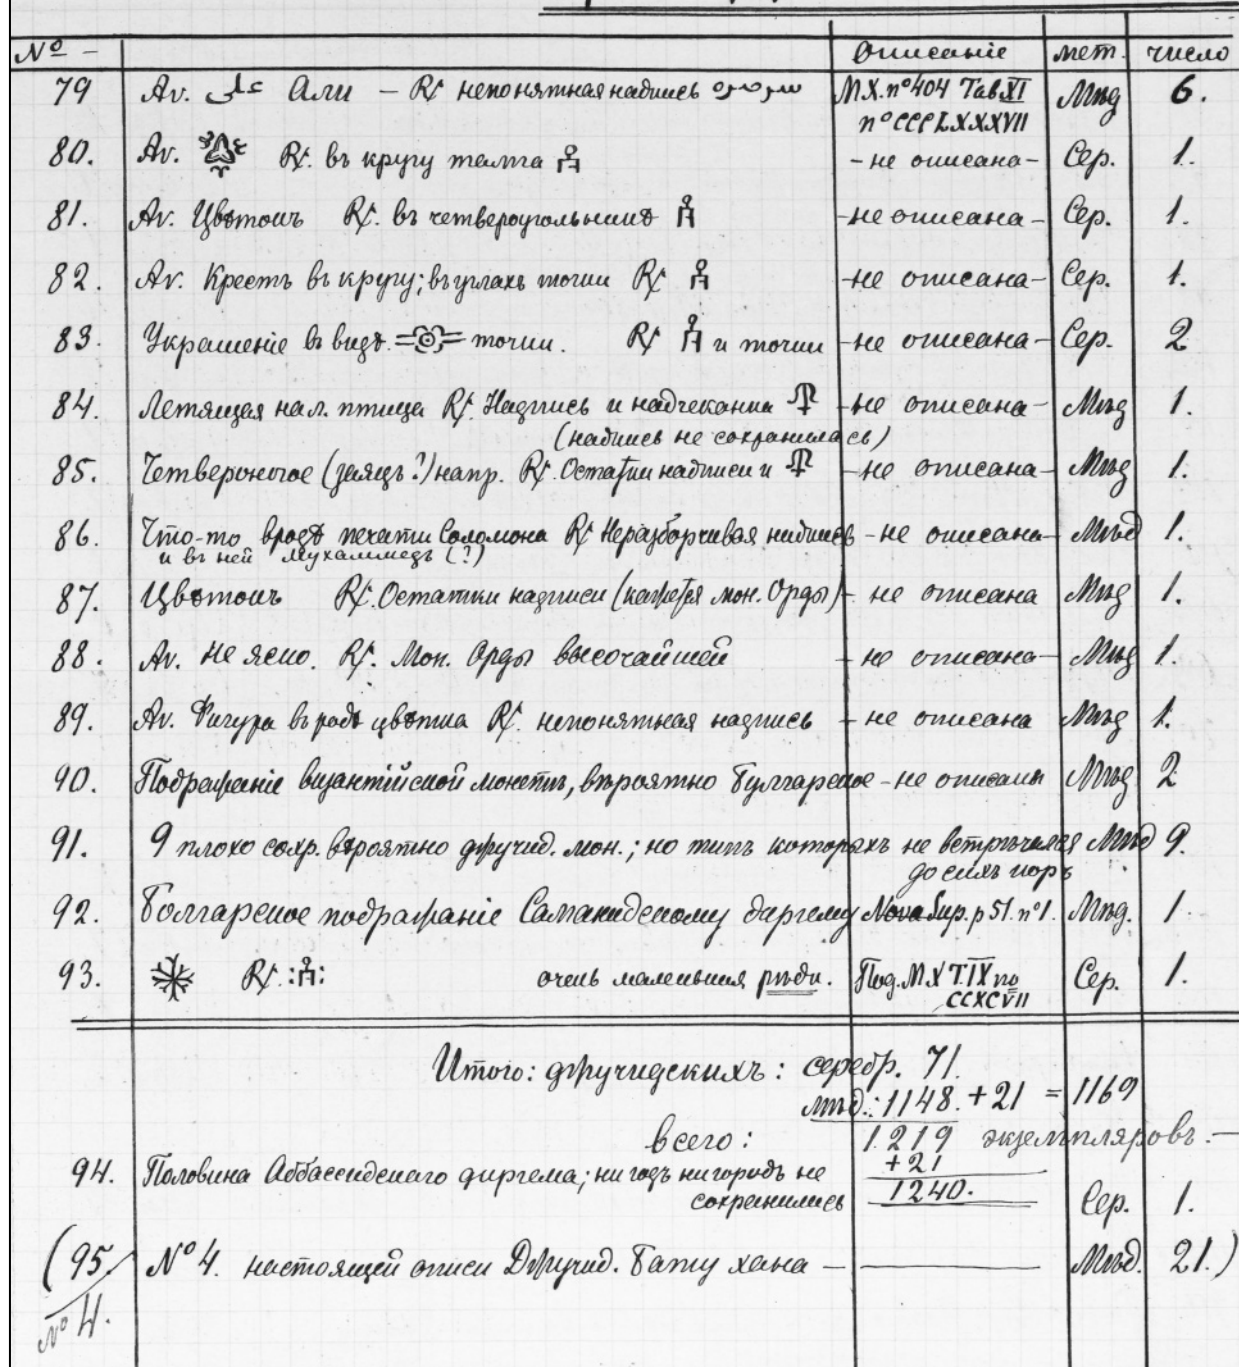 № – Описаніе мет. число
79 Av. علی Али – Rſ непонятная надпись М.Х. nº404 Таб XI Мѣд 6.
nº CCCLXXXVII
80. Av. Rſ. въ кругу тамга – не описана – Сер. 1.
81. Av. Цвѣтокъ Rſ. въ четвероугольникѣ – не описана – Сер. 1.
82. Av. Крестъ въ кругу; въ углахъ точки Rſ – не описана – Сер. 1.
83. Украшеніе въ видѣ точки. Rſ и точки – не описана – Сер. 2
84. Летящая нал. птица Rſ. Надпись и надчеканка – не описана – Мѣд 1.
(надпись не сохранилась)
85. Четвероногое (заяцъ?) напр. Rſ. Остатки надписи и – не описана – Мѣд 1.
86. Что-то вродѣ печати Соломона Rſ Неразборчивая надпись – не описана – Мѣд 1.
и въ ней Мухаммедъ (?)
87. Цвѣтокъ Rſ. Остатки надписи (кажется мон. Орды) – не описана Мѣд 1.
88. Av. Не ясно. Rſ. Мон. Орды высочайшей – не описана – Мѣд 1.
89. Av. Фигура въ родѣ цвѣтка Rſ. непонятная надпись – не описана Мѣд 1.
90. Подражаніе византійской монетѣ, вѣроятно Булгарское – не описаны Мѣд 2
91. 9 плохо сохр. вѣроятно джучид. мон.; но типъ которыхъ не встрѣчался Мѣд 9.
до сихъ поръ
92. Болгарское подражаніе Саманидскому диргему Nova Sup. p 51. nº1. Мѣд. 1.
93. Rſ. очень маленькия рѣдк. Под. М.Х Т. IX no Сер. 1.
CCXCVII
Итого: джучидскихъ: серебр. 71.
мѣд.: 1148. + 21 = 1169
всего: 1.219 экземпляровъ. –
+21
94. Половина Аббассидскаго диргема; ни годъ ни городъ не 1240. Сер. 1.
сохранились
(95. № 4. настоящей описи Джучид. Бату хана – Мѣд. 21.)
№ 4.